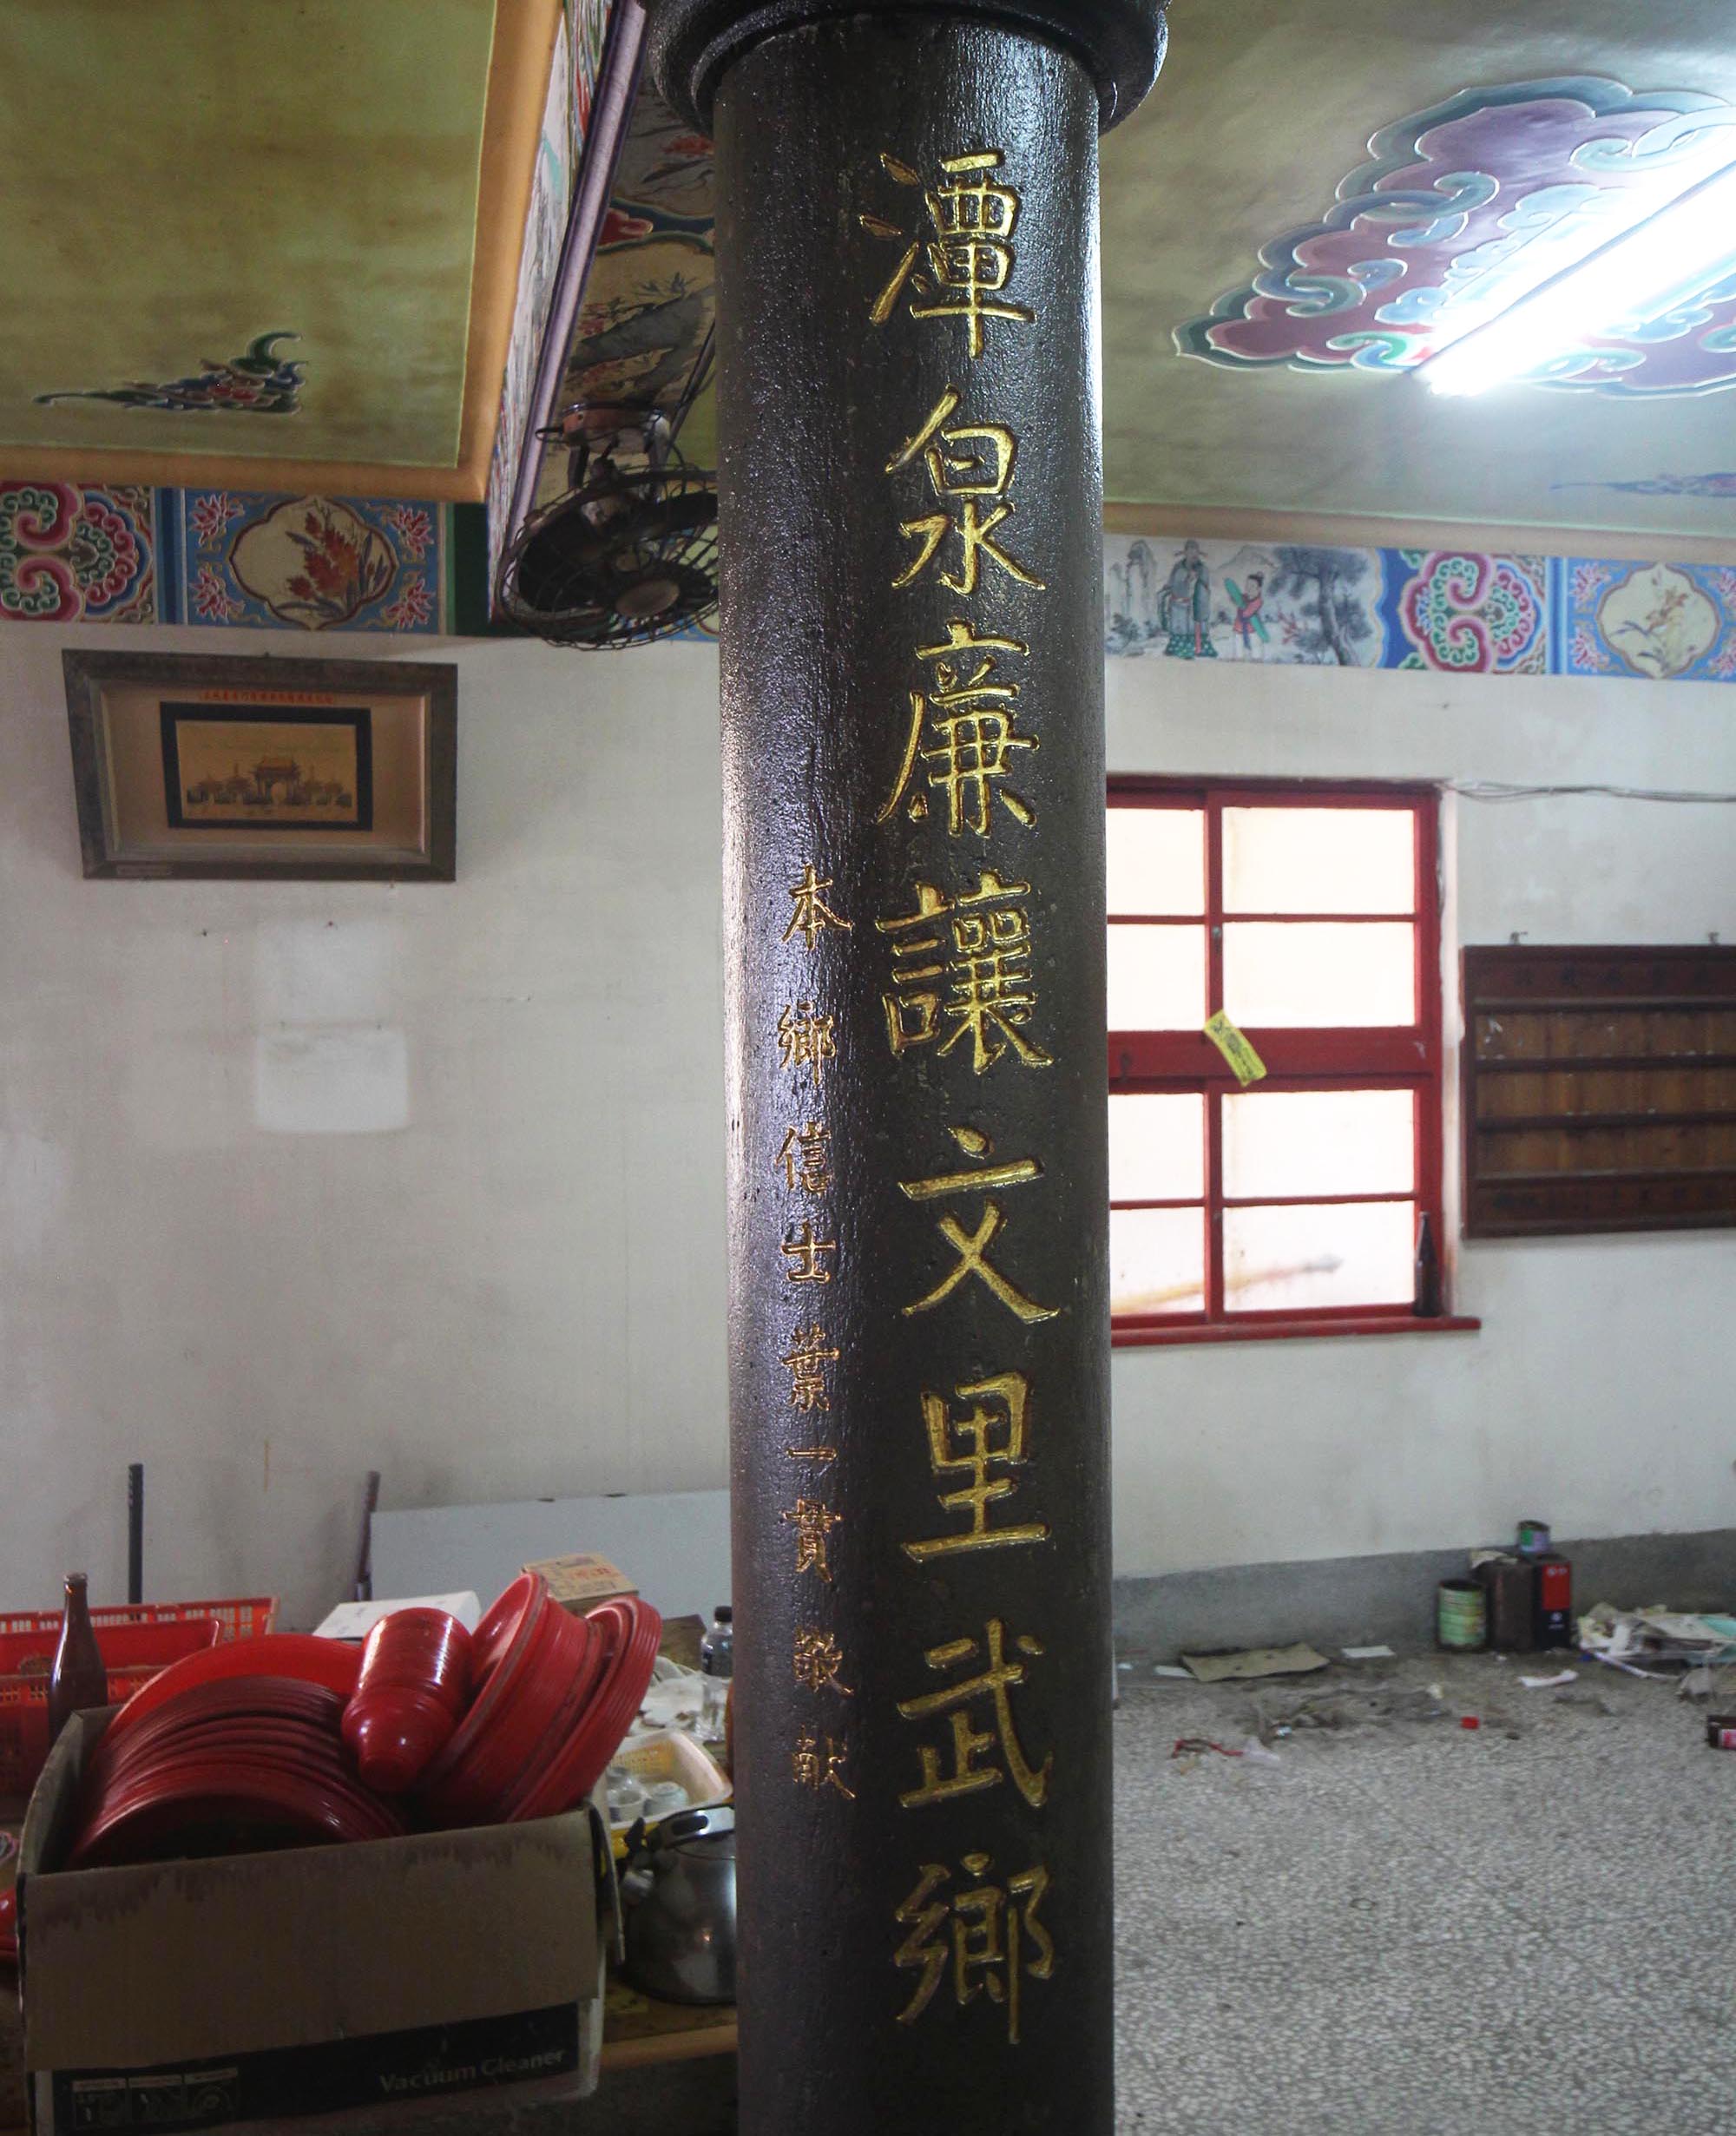 潭泉廉讓文里武鄉
本鄉信士葉一貫敬献
Vacuum Cleaner